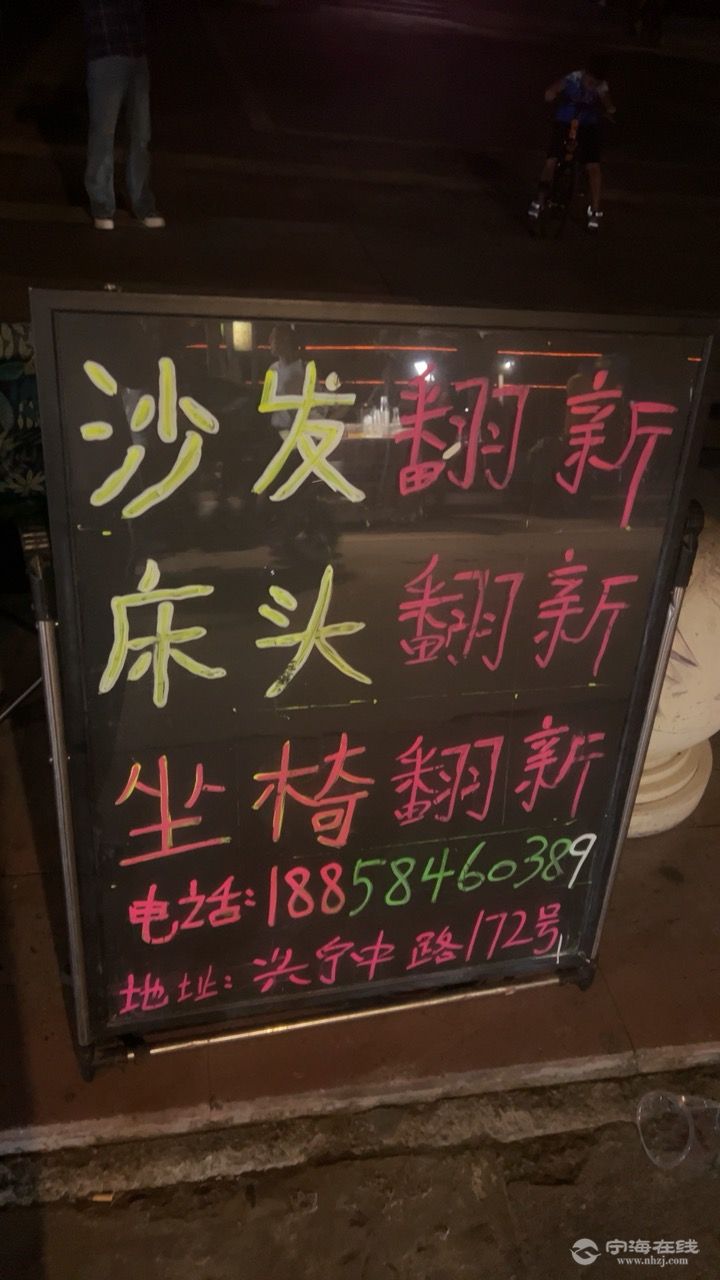 沙发翻新
床头翻新
坐椅翻新
电话:18858460389
地址:兴宁中路172号
宁海在线
www.nhzj.com